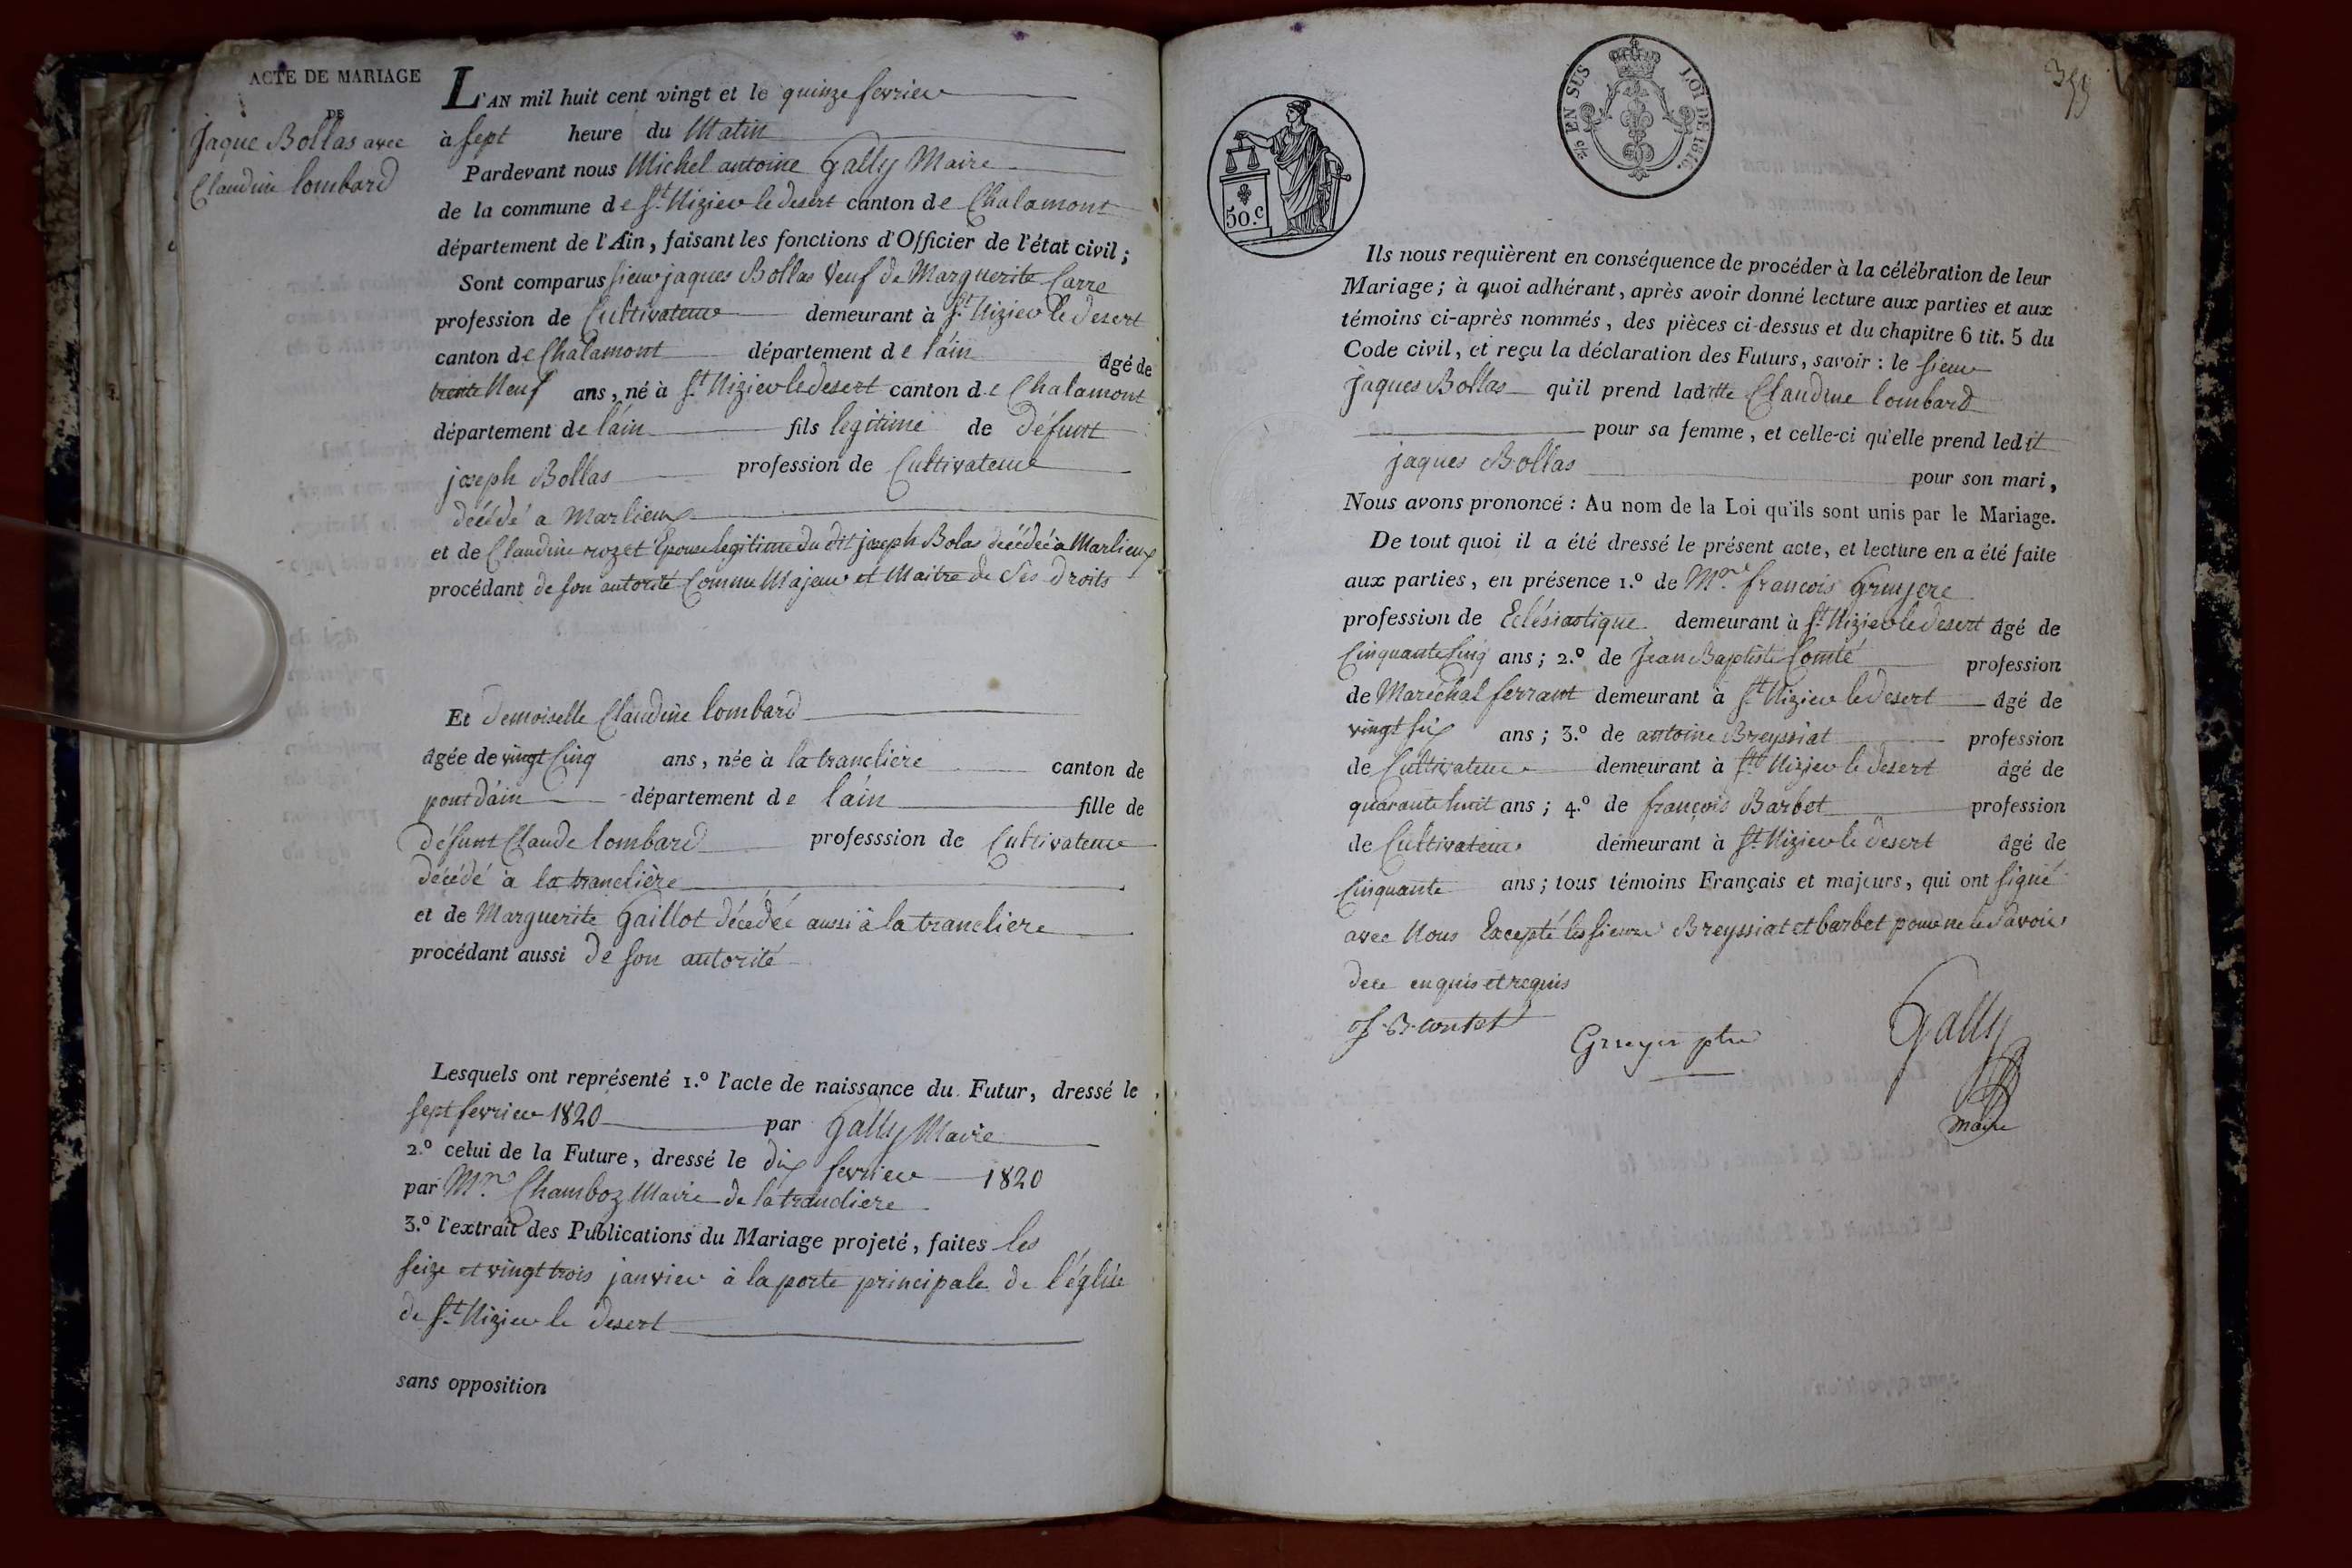 ACTE DE MARIAGE
DE
Jaque Bollas avec
Claudine lombard
L'AN mil huit cent vingt et le quinze fevrier
à sept heure du Matin
Pardevant nous Michel antoine Gally Maire
de la commune de St. Nizier le desert canton de Chalamont
département de l'Ain, faisant les fonctions d'Officier de l'état civil;
Sont comparus sieur jaques Bollas Veuf de Marguerite Carre
profession de Cultivateur demeurant à St. Nizier le desert
canton de Chalamont département de l'ain âgé de
trente Neuf ans, né à St. Nizier le desert canton de Chalamont
département de l'ain fils legitime de défunt
joseph Bollas profession de Cultivateur
décédé a Marlieux
et de Claudine rozet Epouse legitime du dit joseph Bolas décédée a Marlieux
procédant de son autorité Comme Majeur et Maitre de Ses droits
Et demoiselle Claudine lombard
âgée de vingt Cinq ans, née à la tranclière canton de
pont dáin département de l'ain fille de
défunt Claude lombard professsion de Cultivateur
décédé à la tranclière
et de Marguerite Gaillot décédée aussi à la tranclière
procédant aussi de son autorité
Lesquels ont représenté 1.º l'acte de naissance du Futur, dressé le
sept fevrier 1820 par Gally Maire
2.º celui de la Future, dressé le dix fevrier 1820
par Mr. Chamboz Maire de la tranclière
3.º l'extrait des Publications du Mariage projeté, faites les
seize et vingt trois janvier à la porte principale de l'église
de St. Nizier le desert
sans opposition
355
5/c EN SUS LOI DE 1816.
50.c
Ils nous requièrent en conséquence de procéder à la célébration de leur
Mariage; à quoi adhérant, après avoir donné lecture aux parties et aux
témoins ci-après nommés, des pièces ci-dessus et du chapitre 6 tit. 5 du
Code civil, et reçu la déclaration des Futurs, savoir: le sieur
jaques Bollas qu'il prend laditte Claudine lombard
pour sa femme, et celle-ci qu'elle prend ledit
jaques Bollas pour son mari,
Nous avons prononcé: Au nom de la Loi qu'ils sont unis par le Mariage.
De tout quoi il a été dressé le présent acte, et lecture en a été faite
aux parties, en présence 1.º de Mr. francois Gruyere
profession de Eclésiastique demeurant à St. Nizier le desert âgé de
Cinquante Cinq ans; 2.º de Jean Baptiste Comté profession
de Maréchal ferrant demeurant à St. Nizier le desert âgé de
vingt six ans; 3.º de antoine Breyssiat profession
de Cultivateur demeurant à St. Nizier le desert âgé de
quarante huit ans; 4.º de françois Barbet profession
de Cultivateur demeurant à St. Nizier le desert âgé de
Cinquante ans; tous témoins Français et majeurs, qui ont signé
avec Nous Excepté les sieurs Breyssiat et barbet pour ne le Savoir
de ce enquis et requis
J. B. contet
Gruyer ptre
Gally
maire